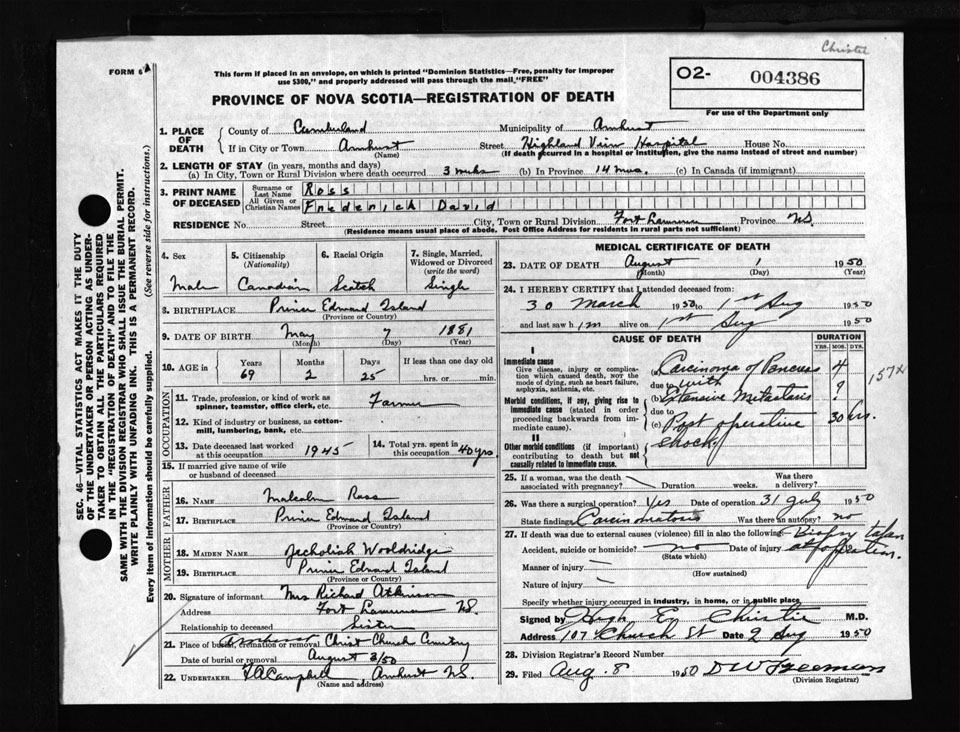 Christie
FORM 6A
This form if placed in an envelope, on which is printed "Dominion Statistics—Free, penalty for improper
use $300," and properly addressed will pass through the mail "FREE"
O2- 004386
For use of the Department only
PROVINCE OF NOVA SCOTIA—REGISTRATION OF DEATH
SEC. 46—VITAL STATISTICS ACT MAKES IT THE DUTY
OF THE UNDERTAKER OR PERSON ACTING AS UNDER-
TAKER TO OBTAIN ALL THE PARTICULARS REQUIRED
IN THE "REGISTRATION OF DEATH" AND TO FILE THE
SAME WITH THE DIVISION REGISTRAR WHO SHALL ISSUE THE BURIAL PERMIT.
WRITE PLAINLY WITH UNFADING INK. THIS IS A PERMANENT RECORD.
Every item of information should be carefully supplied. (See reverse side for instructions.)
1. PLACE OF DEATH
County of Cumberland Municipality of Amherst
If in City or Town Amherst (Name) Street Highland View Hospital House No.
(If death occurred in a hospital or institution, give the name instead of street and number)
2. LENGTH OF STAY (in years, months and days)
(a) In City, Town or Rural Division where death occurred 3 (b) In Province 14 (c) In Canada (if immigrant)
3. PRINT NAME OF DECEASED
Surname or Last Name Ross
All Given or Christian Names Frederick David
RESIDENCE No. Street City, Town or Rural Division Fort Lawrence Province N.S.
(Residence means usual place of abode. Post Office Address for residents in rural parts not sufficient)
4. Sex Male
5. Citizenship (Nationality) Canadian
6. Racial Origin Scotch
7. Single, Married, Widowed or Divorced (write the word) Single
8. BIRTHPLACE Prince Edward Island
(Province or Country)
9. DATE OF BIRTH May 7 1881
(Month) (Day) (Year)
10. AGE in Years 69 Months 2 Days 25 If less than one day old hrs. or min.
OCCUPATION
11. Trade, profession, or kind of work as spinner, teamster, office clerk, etc. Farmer
12. Kind of industry or business, as cotton-mill, lumbering, bank, etc.
13. Date deceased last worked at this occupation 1945
14. Total yrs. spent in this occupation 40 yrs
15. If married give name of wife or husband of deceased
FATHER
16. NAME Malcolm Ross
17. BIRTHPLACE Prince Edward Island
(Province or Country)
MOTHER
18. MAIDEN NAME Jecholiah Wooldridge
19. BIRTHPLACE Prince Edward Island
(Province or Country)
20. Signature of informant Mrs Richard Atkinson
Address Fort Lawrence N.S.
Relationship to deceased Sister
21. Place of burial, cremation or removal Amherst Christ Church Cemetery
Date of burial or removal August 3/50
22. UNDERTAKER F A Campbell, Amherst N.S.
(Name and address)
MEDICAL CERTIFICATE OF DEATH
23. DATE OF DEATH August 1 1950
(Month) (Day) (Year)
24. I HEREBY CERTIFY that I attended deceased from:
30 March 1950 to 1st Aug 1950
and last saw him alive on 1st Aug 1950
CAUSE OF DEATH DURATION
YRS. MOS. DYS.
I
Immediate cause
Give disease, injury or complication which caused death, not the mode of dying, such as heart failure, asphyxia, asthenia, etc.
(a) Carcinoma of Pancreas 4
due to with
Morbid conditions, if any, giving rise to immediate cause (stated in order proceeding backwards from immediate cause).
(b) Extensive Metastasis ?
due to
(c) Post operative shock 30 hrs.
157x
II
Other morbid conditions (if important) contributing to death but not causally related to immediate cause.
25. If a woman, was the death associated with pregnancy? Duration weeks. Was there a delivery?
26. Was there a surgical operation? Yes Date of operation 31 July 1950
State findings Carcinomatosis Was there an autopsy? no
27. If death was due to external causes (violence) fill in also the following:— Biopsy taken
Accident, suicide or homicide? no Date of injury at operation.
(State which)
Manner of injury
(How sustained)
Nature of injury
Specify whether injury occurred in industry, in home, or in public place.
Signed by Hugh E. Christie M.D.
Address 107 Church St Date 2 Aug 1950
28. Division Registrar's Record Number
29. Filed Aug. 8 1950 D W Freeman
(Division Registrar)